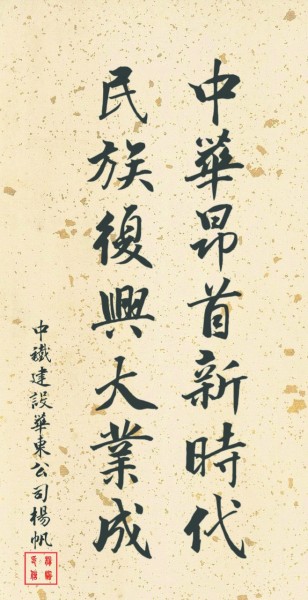 中華昂首新時代
民族復興大業成
中鐵建設華東公司楊帆